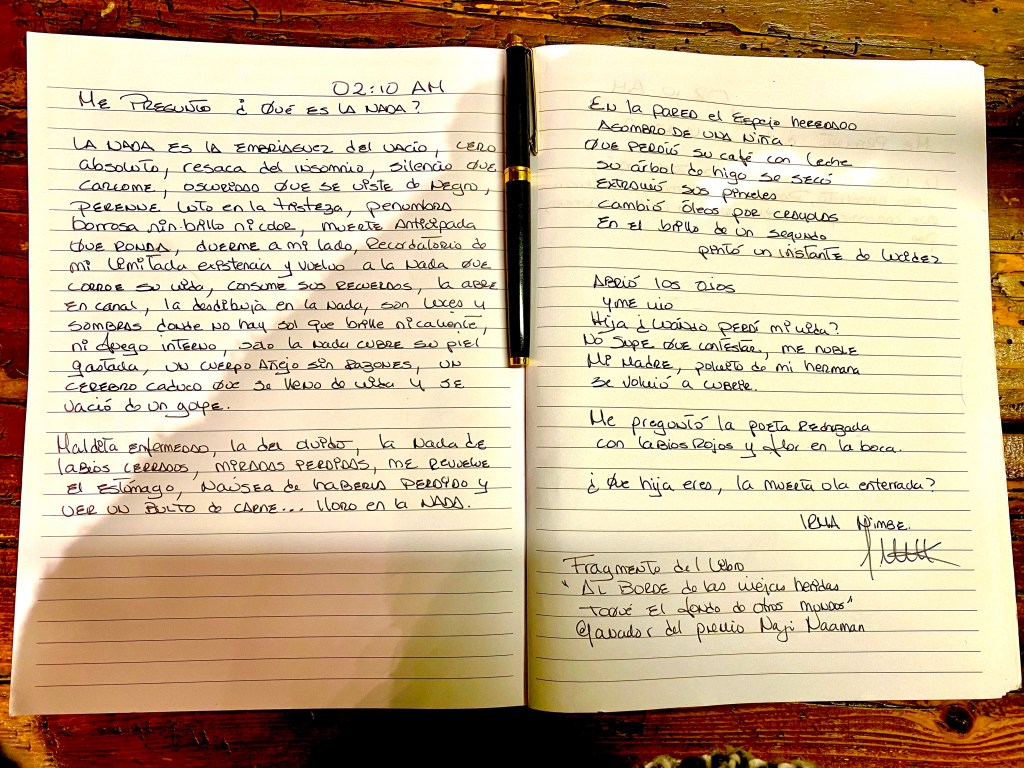 02:10 AM
ME PREGUNTO ¿ QUÉ ES LA NADA?
LA NADA ES LA EMBRIAGUEZ DEL VACIO, CERO
absoluto, resaca del insomnio, silencio QUE
CARCOME, OSCURIDAD QUE SE VISTE de NEGRO,
PERENNE LUTO en la tristeza, penumbra
borrosa sin brillo ni color, MUERTE ANTICIPADA
QUE RONDA, DUERME A mi lado, RecordAtorio de
mi limitada existencia y vuelvo a la Nada QUE
CORROE SU VIDA, CONSUME SUS RECUERDOS, la ABRE
EN CANAL, la desdibuja en la Nada, son luces y
SOMBRAS donde NO hay sol que brille ni caliente,
ni apego interno, solo la Nada CUBRE SU piel
gastada, un CUERPO AÑEJO SIN RAZONES, UN
CEREBRO CADUCO QUE SE lleno de VIDA y SE
VACIÓ de un golpe.
Maldita enfermedad, la del olvido, la Nada de
LABIOS CERRADOS, MIRADAS PERDIDAS, ME REVUELVE
EL ESTÓMAGO, NAÚSEA de HABERLA PERDIDO y
VER UN BULTO de CARNE... lloro en la NADA.
EN la PARED el ESPEJO HEREDADO
ASOMBRO DE UNA NIÑA:
QUE PERDIÓ SU café con leche
su árbol de higo se secó
EXTRAVIÓ SUS PINCELES
Cambió óleos por
EN El brillo de un segundo
pintó un instante de lucidez
ABRIÓ LOS OJOS
y me vio
Hija ¿cuándo PERDÍ mi vida?
NO SUPE QUE CONTESTAR, ME NUBLÉ
Mi MADRE, de mi hermana
se volvió a CUBRIR.
Me preguntó la POETA RECHAZADA
con LABIOS ROJOS y flor en la boca.
¿QUE hija eres, la MUERTA o la enterrada?
IRMA NIMBE.
Fragmento del libro
" AL BORDE de las viejas heridas
TOQUÉ EL fondo de otros MUNDOS"
Ganador del premio Naji Naaman